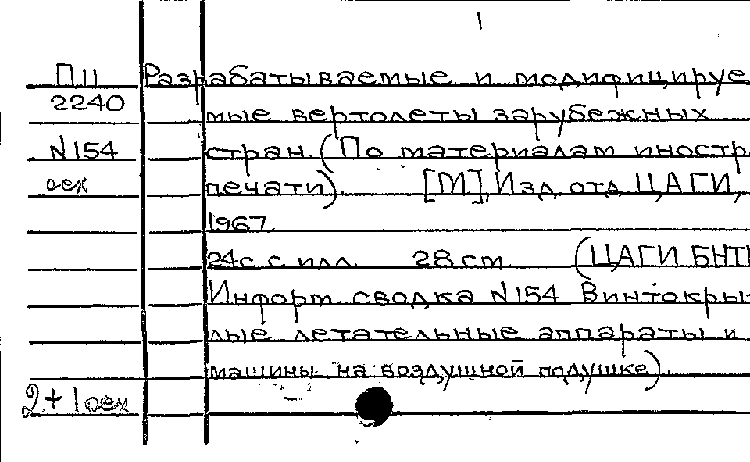 1
П11 Разрабатываемые и модифицируе
2240 мые вертолеты зарубежных
N154 стран. (По материалам иностр
оех печати). [М], Изд. отд. ЦАГИ,
1967.
24с. с илл. 28 см. (ЦАГИ БНТ
Информ. сводка N154 Винтокры
лые летательные аппараты и
машины на воздушной подушке).
2+1оех